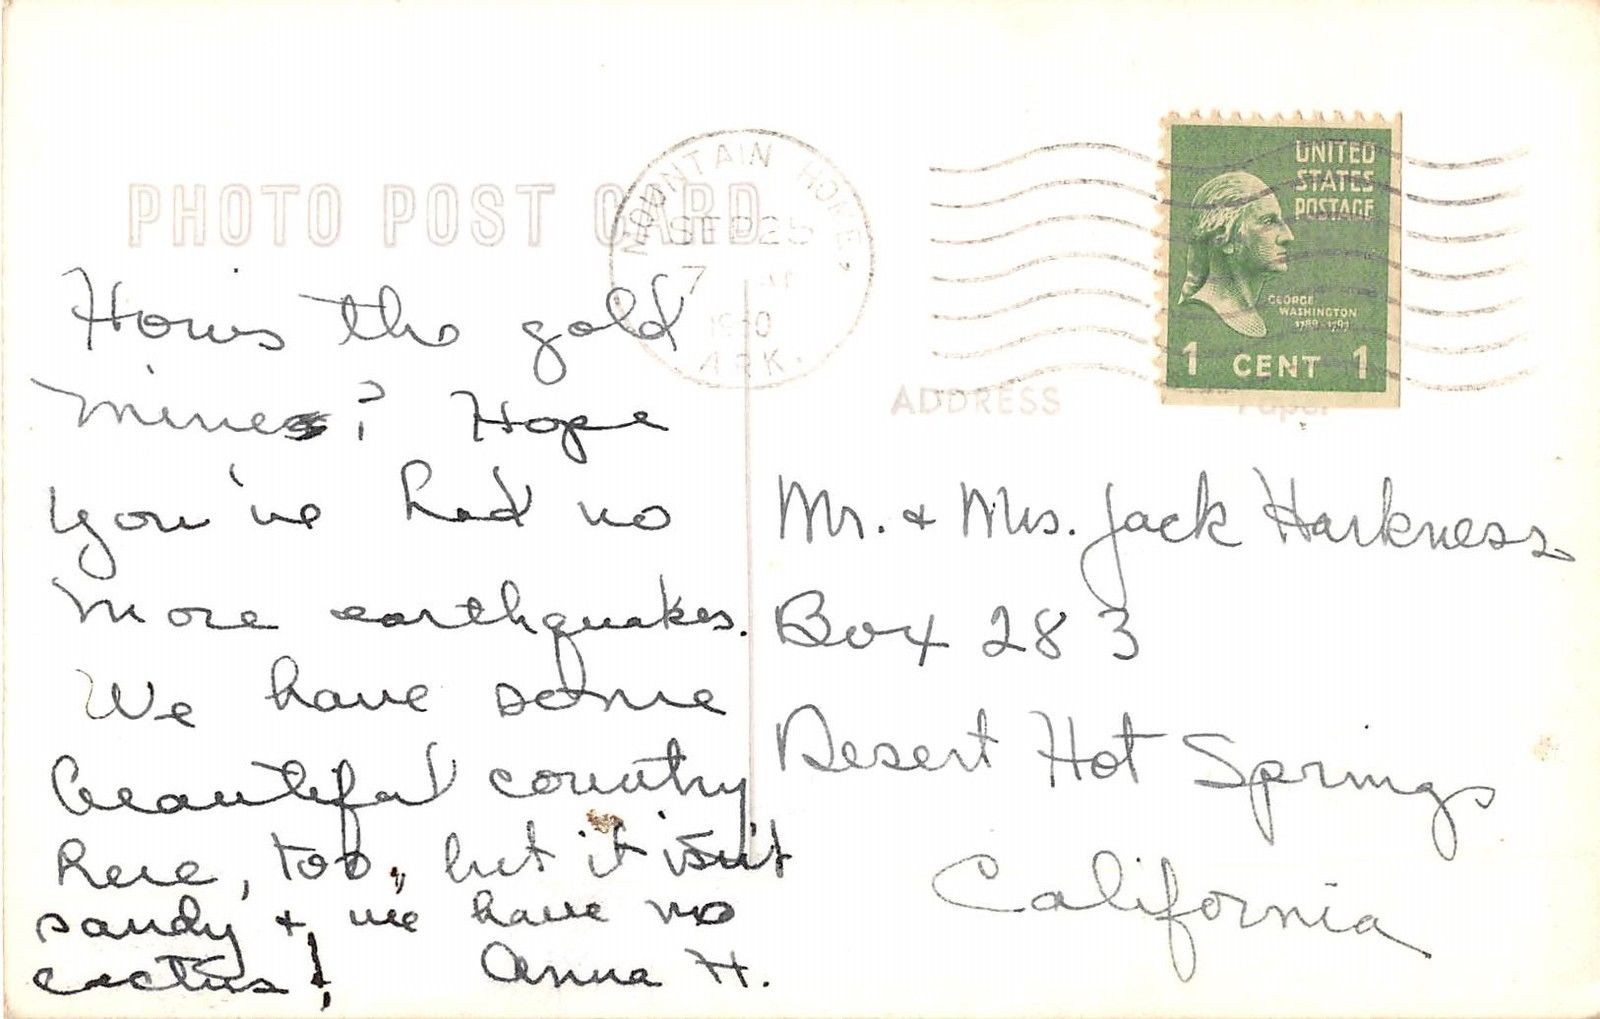 PHOTO POST CARD
MOUNTAIN HOME,
SEP 25
7 AM
1950
ARK.
UNITED
STATES
POSTAGE
GEORGE
WASHINGTON
1789-1797
1 CENT 1
ADDRESS
How's the gold
mines? Hope
you've had no
more earthquakes.
We have some
beautiful country
here, too, but it isn't
sandy + we have no
cactus!
Anna H.
Mr. + Mrs. Jack Harkness
Box 283
Desert Hot Springs
California